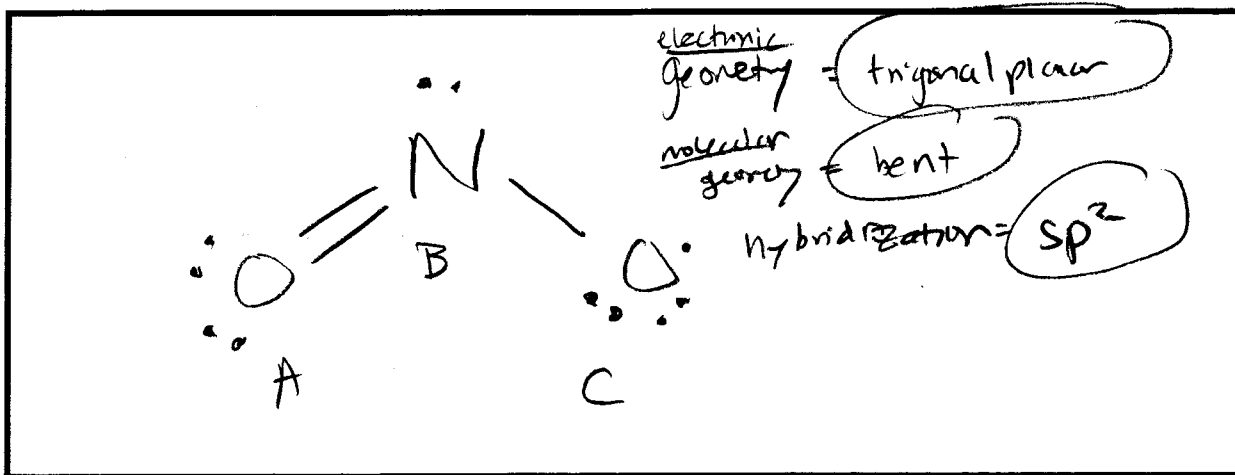 electronic
geometry = trigonal planar
molecular
geometry = bent
hybridization = sp²
N
B
O
O
A
C